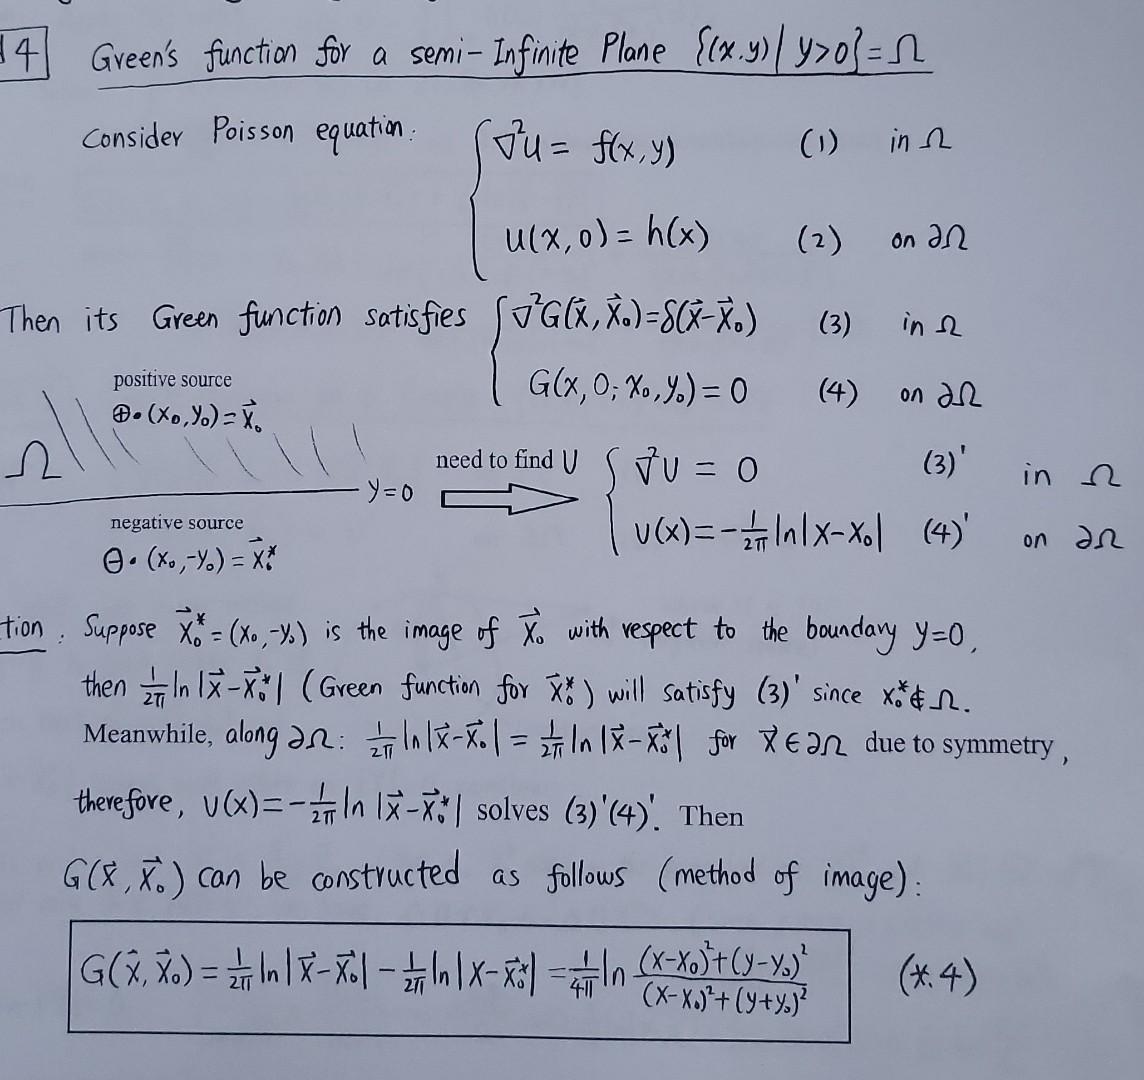 14 Green's function for a semi-Infinite Plane {(x.y)| y>0}=Ω
Consider Poisson equation: { ∇²u = f(x,y) (1) in Ω
u(x,0) = h(x) (2) on ∂Ω
Then its Green function satisfies { ∇²G(x⃗, x⃗₀)=δ(x⃗-x⃗₀) (3) in Ω
G(x,0; x₀,y₀) = 0 (4) on ∂Ω
positive source
⊕• (x₀,y₀) = x⃗₀
Ω
y=0
negative source
⊖• (x₀,-y₀) = x⃗₀*
need to find U ⇒ { ∇²U = 0 (3)' in Ω
U(x)=-1/2π ln|x-x₀| (4)' on ∂Ω
tion. Suppose x⃗₀* = (x₀,-y₀) is the image of x⃗₀ with respect to the boundary y=0,
then 1/2π ln |x⃗-x⃗₀*| (Green function for x⃗₀*) will satisfy (3)' since x₀*∉Ω.
Meanwhile, along ∂Ω: 1/2π ln|x⃗-x⃗₀| = 1/2π ln |x⃗-x⃗₀*| for x⃗∈∂Ω due to symmetry,
therefore, U(x)=-1/2π ln |x⃗-x⃗₀*| solves (3)'(4)'. Then
G(x⃗, x⃗₀) can be constructed as follows (method of image):
G(x⃗, x⃗₀) = 1/2π ln|x⃗-x⃗₀| - 1/2π ln|x-x⃗₀*| = 1/4π ln (x-x₀)²+(y-y₀)² / (x-x₀)²+(y+y₀)² (*.4)